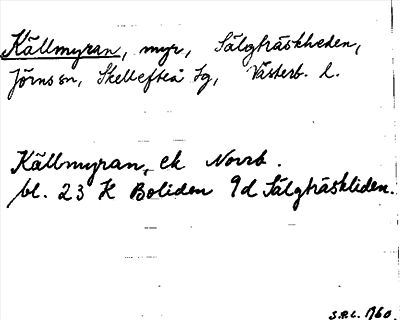 Källmyran, myr, Sälgträskheden,
Jörns sn, Skellefteå tg, Västerb. l.
Källmyran, ek Norrb.
bl. 23 K Boliden 9d Sälgträskliden.
S.R.L. 1760.